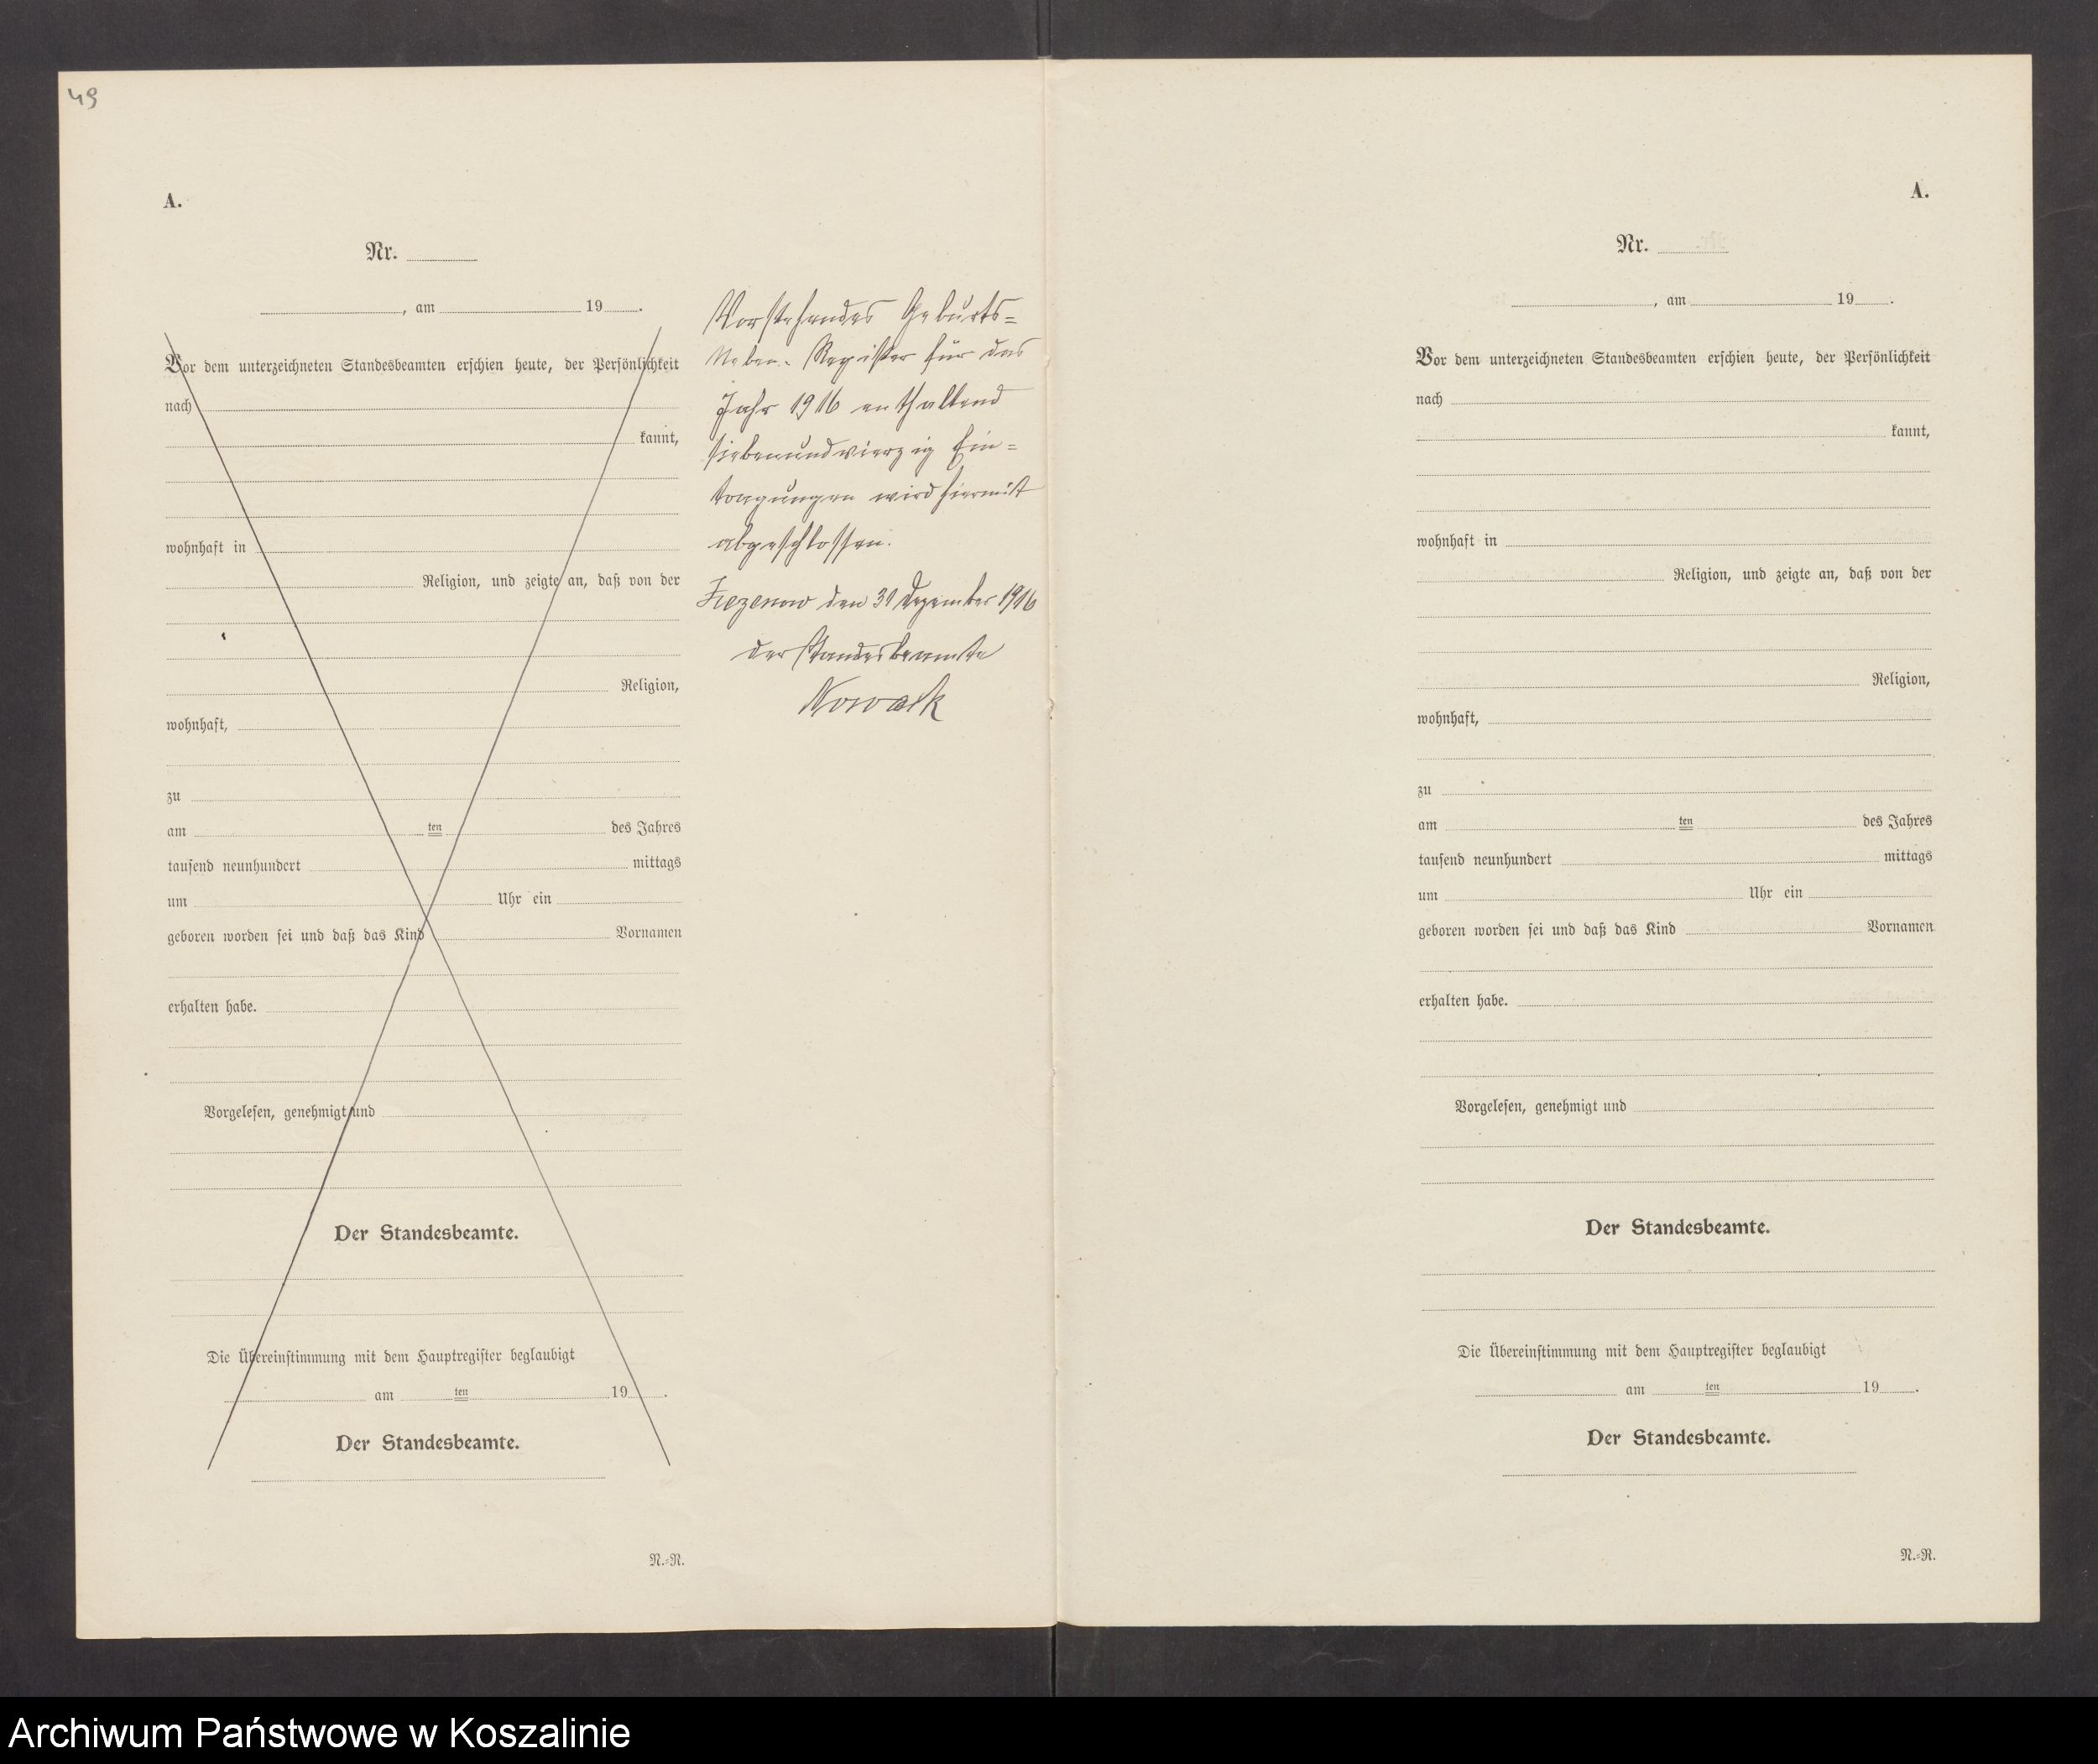 49
A.
Nr.
, am 19 .
Vor dem unterzeichneten Standesbeamten erschien heute, der Persönlichkeit
nach
kannt,
wohnhaft in
Religion, und zeigte an, daß von der
Religion,
wohnhaft,
zu
am ten des Jahres
tausend neunhundert mittags
um Uhr ein
geboren worden sei und daß das Kind Vornamen
erhalten habe.
Vorgelesen, genehmigt und
Der Standesbeamte.
Die Übereinstimmung mit dem Hauptregister beglaubigt
am ten 19 .
Der Standesbeamte.
N.-R.
Vorstehendes Geburts=
Neben-Register für das
Jahr 1916 enthaltend
siebenundvierzig Ein=
tragungen wird hiermit
abgeschlossen.
Zezenow den 31 Dezember 1916
der Standesbeamte
Nowack
A.
Nr.
, am 19 .
Vor dem unterzeichneten Standesbeamten erschien heute, der Persönlichkeit
nach
kannt,
wohnhaft in
Religion, und zeigte an, daß von der
Religion,
wohnhaft,
zu
am ten des Jahres
tausend neunhundert mittags
um Uhr ein
geboren worden sei und daß das Kind Vornamen
erhalten habe.
Vorgelesen, genehmigt und
Der Standesbeamte.
Die Übereinstimmung mit dem Hauptregister beglaubigt
am ten 19 .
Der Standesbeamte.
N.-R.
Archiwum Państwowe w Koszalinie